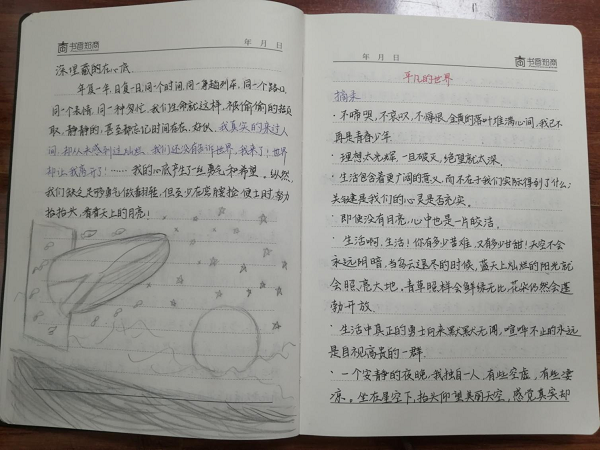 书意绘商
年 月 日
深埋藏的在心底.
年复一年,日复一日,同一个时间,同一条趟列车,同一个路口,
同一个表情,同一种匆忙.我们生命就这样,被偷偷的抬
取,静静的,甚至都忘记时间存在,好似,我真实的来过人
间,却从未感到过灿烂,我们还没有告诉世界,我来了!世界
却让我离开了!…… 我的心底产生了一丝勇气和希望。纵然,
我们缺乏足够勇气做翻鞋,但至少在弯腰捡便士时,努力
抬抬头,看看天上的月亮!
年 月 日
书意绘商
平凡的世界
摘来
·不啼哭,不哀叹,不悔恨,金黄的落叶堆满心间,我已不
再是青春少年.
·理想太光辉,一旦破灭,绝望就太深.
·生活包含着更广阔的意义,而不在于我们实际得到了什么;
关键是我们的心灵是否充实。
·即使没有月亮,心中也是一片皎洁.
·生活啊,生活!你有多少苦难,又有多少甘甜!天空不会
永远阴暗,当乌云退尽的时候,蓝天上灿烂的阳光就
会照亮大地。青草照样会鲜绿无比,花朵仍然会蓬
勃开放.
·生活中真正的勇士向来默默无闻,喧哗不止的永远
是自视高贵的一群.
·一个安静的夜晚,我独自一人,有些空虚,有些凄
凉。坐在星空下,抬头仰望美丽天空,感觉真实却